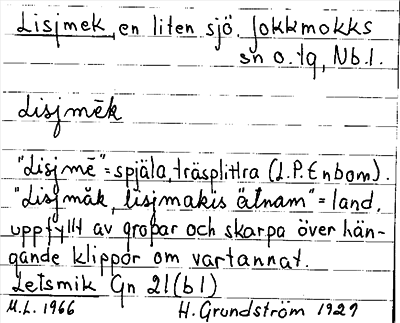 Lisjmek, en liten sjö. Jokkmokks
sn o. tg, Nb.l.
Lisjmēk
"Lisjmē" = spjäla, träsplittra (J.P. Enbom).
"Lisjmăk, lisjmakis ätnam" = land,
uppfyllt av gropar och skarpa över hän-
gande klippor om vartannat.
Letsmik Gn 21(b1)
M.L. 1966 H. Grundström 1929